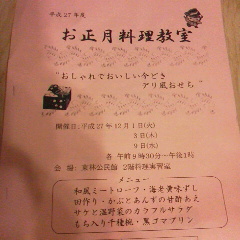 平成27年度
お正月料理教室
"おしゃれでおいしい今どき
アリ風おせち"
開催日:平成27年12月1日(火)
3日(木)
9日(水)
各 午前9時30分~午後1時
会 場:東林公民館 2階料理実習室
メニュー
和風ミートローフ・海老黄味ずし
田作り・かぶとあんずの甘酢あえ
サケと温野菜のカラフルサラダ
もち入り千種椀・黒ゴマプリン